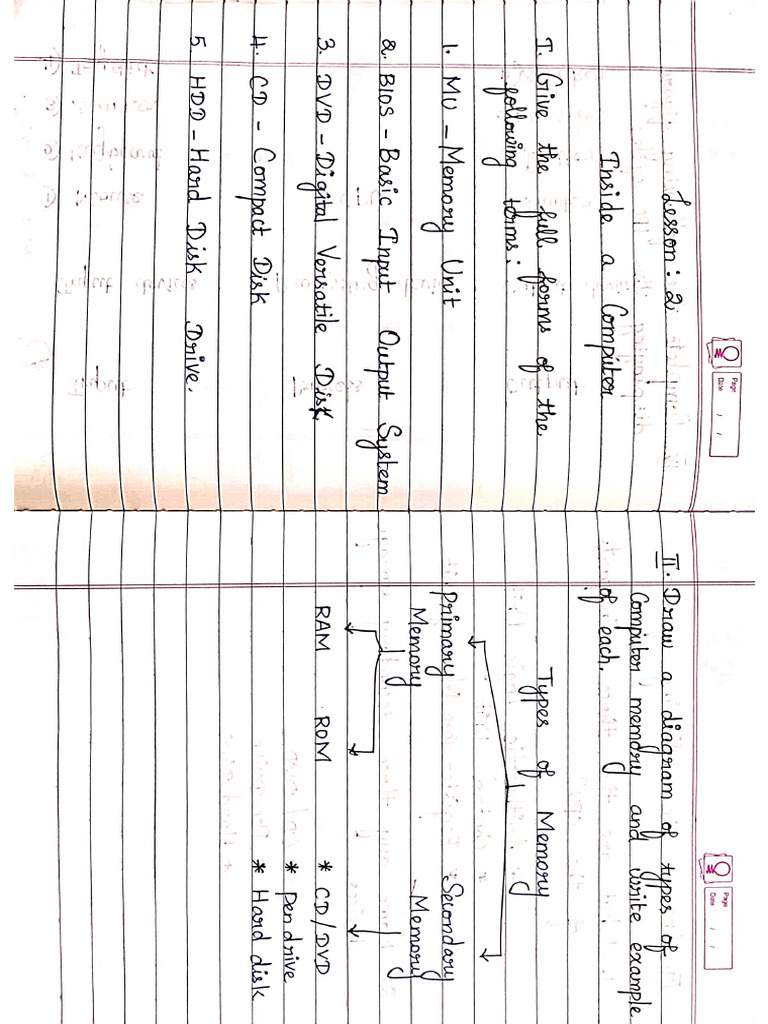 Page
Date
Lesson: 2
Inside a Computer
I. Give the full forms of the
following terms:
1. MU - Memory Unit
2. BIOS - Basic Input Output System
3. DVD - Digital Versatile Disk
4. CD - Compact Disk
5. HDD - Hard Disk Drive.
Page
Date
II. Draw a diagram of types of
Computer memory and write example
of each.
Types of Memory
Primary Memory
Secondary Memory
RAM ROM
* CD/DVD
* Pendrive
* Hard disk